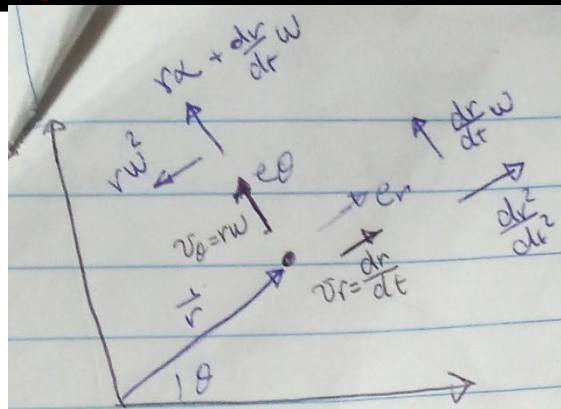 rα + dr/dt ω
rω²
eθ
dr/dt ω
er
dr²/dt²
vθ=rω
vr=dr/dt
r
θ